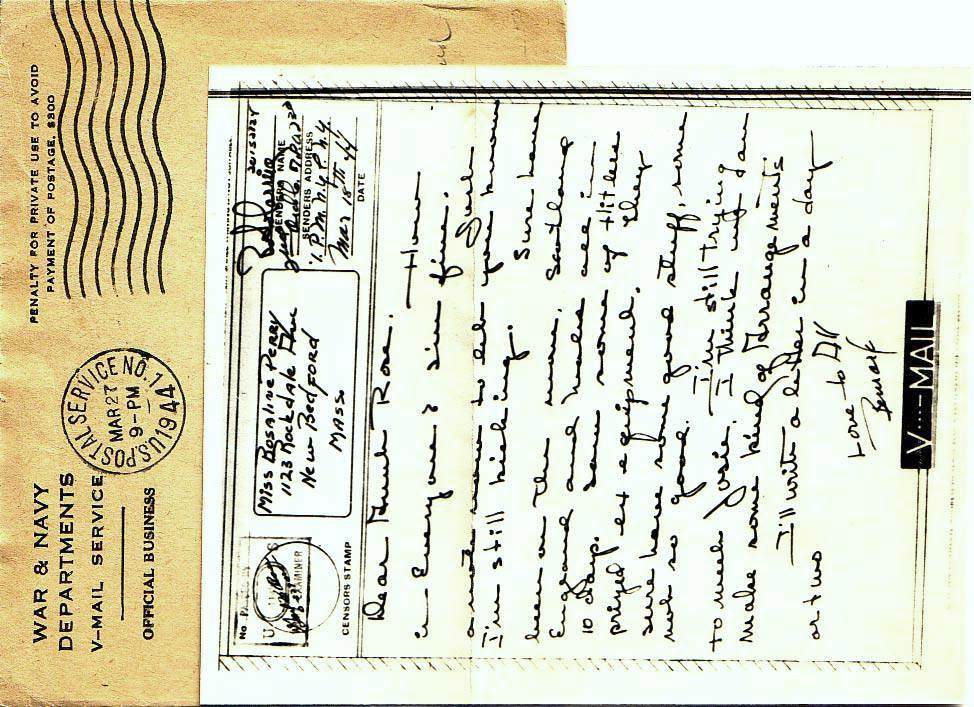 WAR & NAVY
DEPARTMENTS
V-MAIL SERVICE
OFFICIAL BUSINESS
U.S. POSTAL SERVICE NO. 1
MAR 27
9-PM
1944
PENALTY FOR PRIVATE USE TO AVOID
PAYMENT OF POSTAGE, $300
No.
CENSORS STAMP
EXAMINER
Miss Rosaline Perry
1123 Rockdale Ave
New Bedford
Mass
SENDERS NAME
SENDERS ADDRESS
Mar 18th 44
DATE
Dear Aunt Rose.
How
is Everyone? I'm fine.
a note now to let you know
I'm still kicking. Sure have
been on the move,
England and Wales all in
10 days. some of Hitlers
equipment. They
sure have some good stuff, some
not so good. I'm still trying
to reach I think we can
make some kind of Arrangements
I'll write a letter in a day
or two
Love to All
V···-MAIL